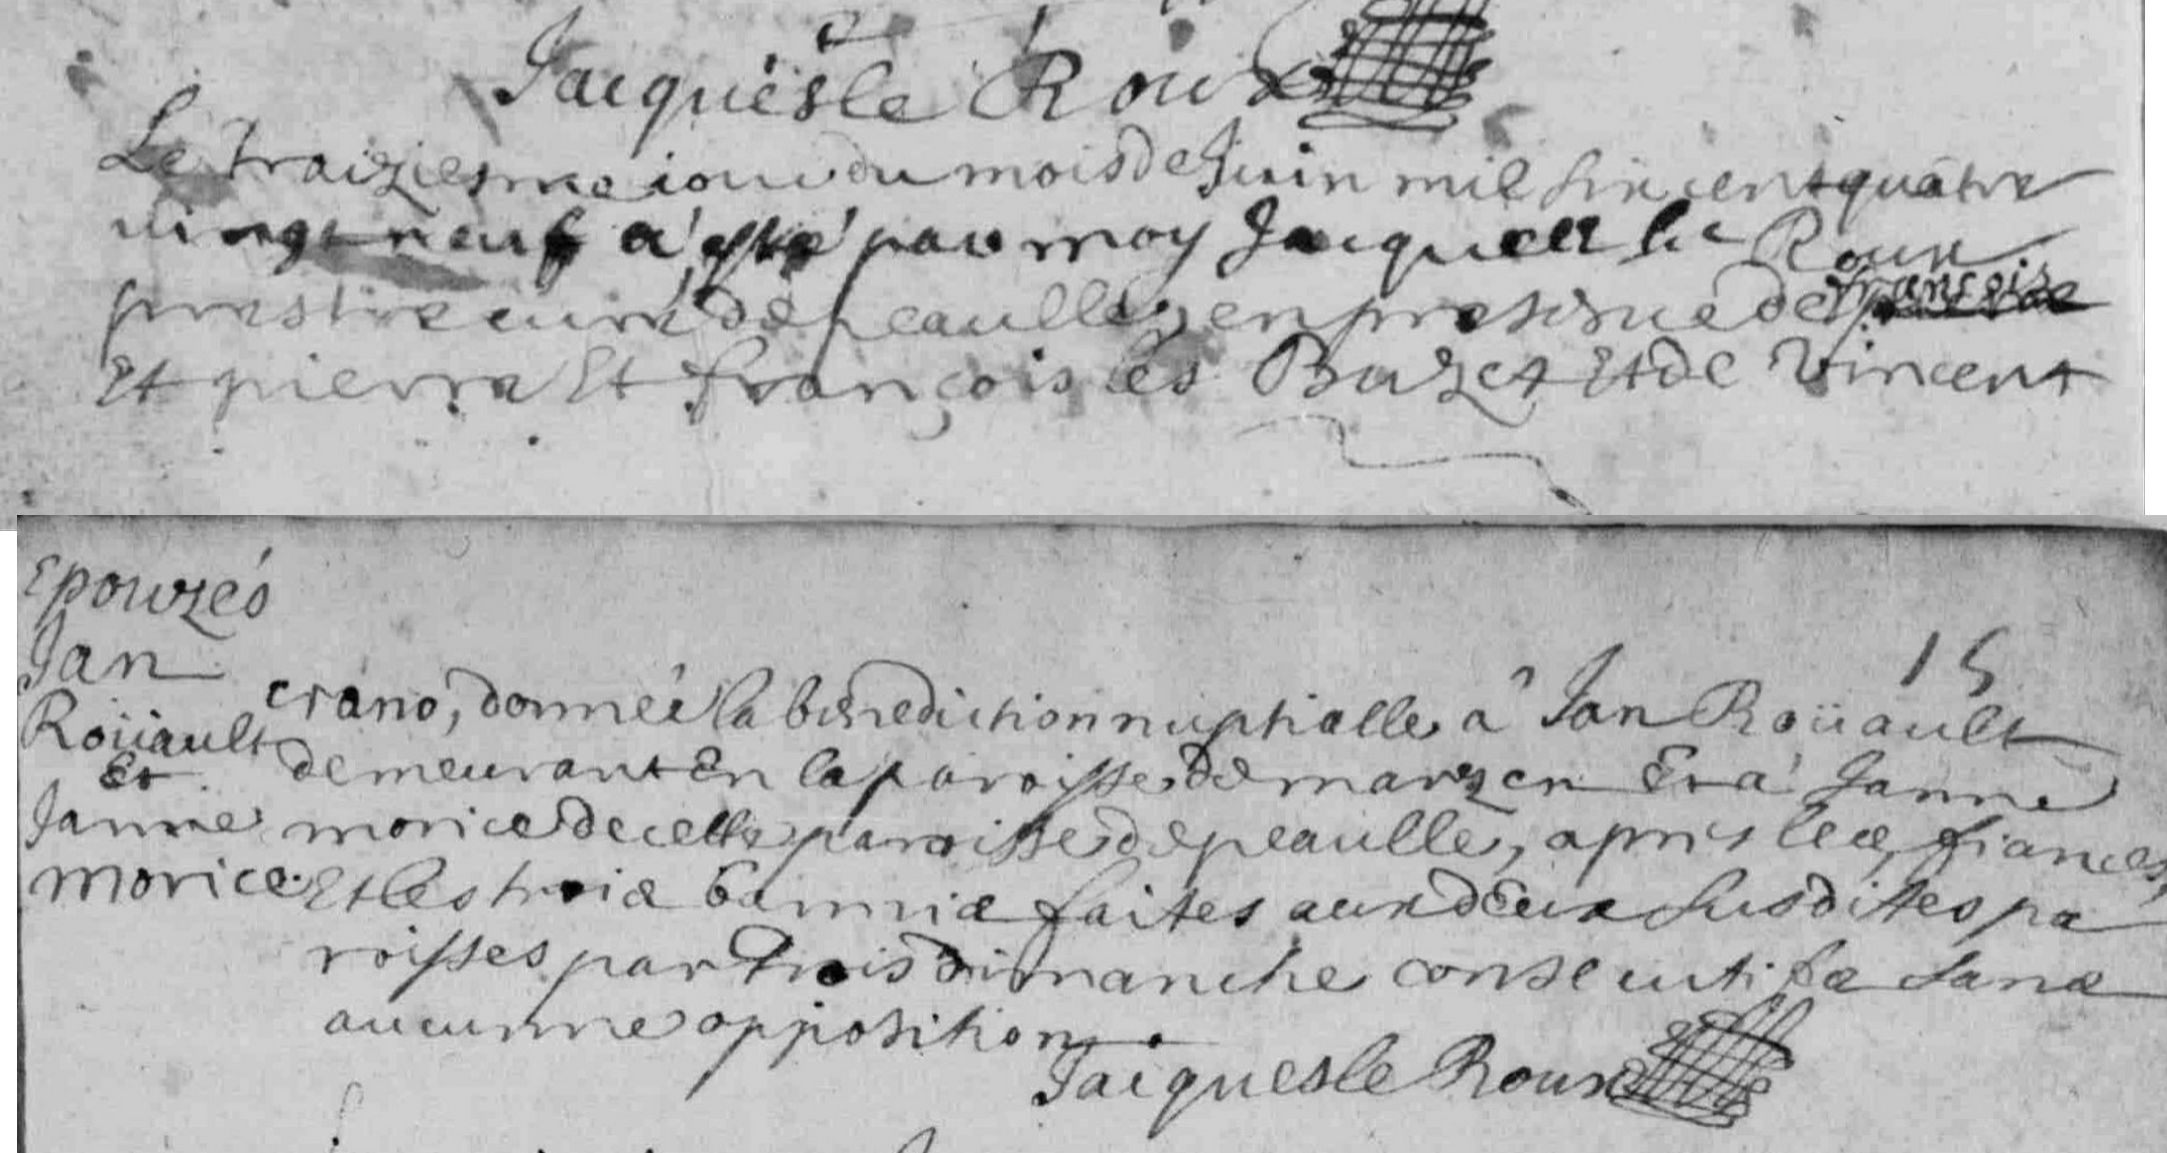 Jacques le Roux
Le traiziesme iour du mois de Juin mil six cent quatre
vingt neuf a esté par moy Jacques le Roux
prestre curé de peaulle, en presence de françoise
Et pierre Et françois les Buzet Et de Vincent
Epouzés
Jan
Roüault
Et
Janne
morice
15
crano, donnée la benediction nuptialle a Jan Roüault
demeurant En la paroisse de marzen Et a Janne
morice de celle paroisse de peaulle, apres les fiances,
Et les trois bannies faites aux deux susdittes pa
roisses par trois dimanche consecutifs sans
aucunne opposition.
Jacques le Roux